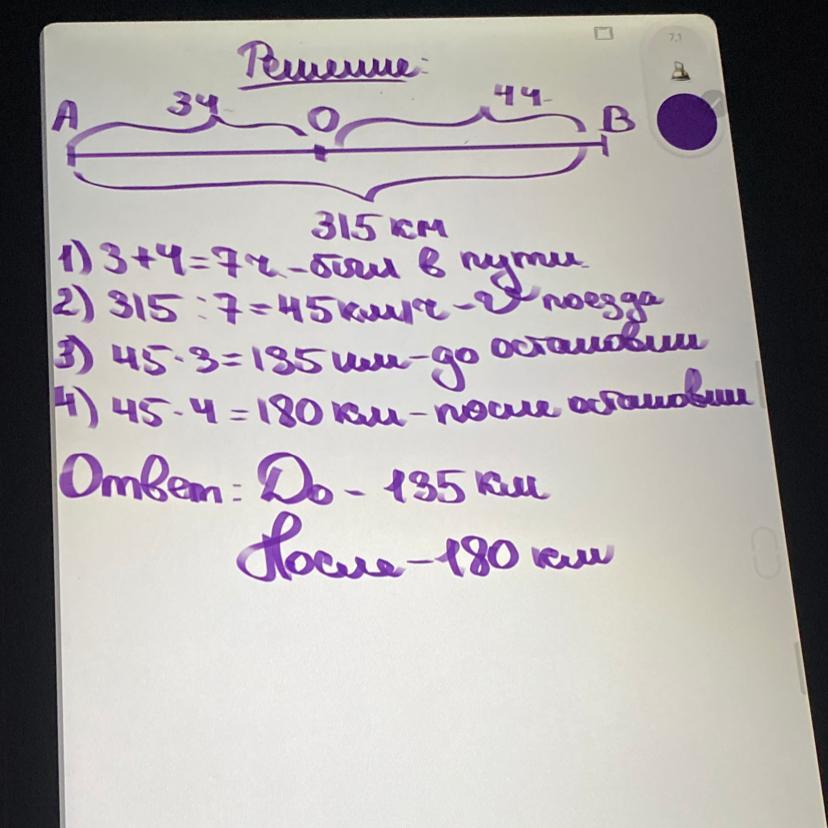 7,1
Решение:
А 3ч О 4ч В
315 км
1) 3+4=7ч-был в пути
2) 315:7=45км/ч-V поезда
3) 45·3=135 км-до остановки
4) 45·4=180 км-после остановки
Ответ: До - 135 км
После-180 км